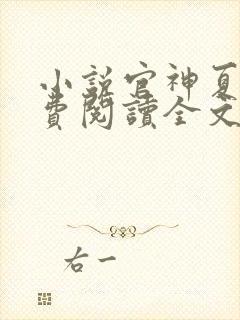 小說官神夏
費閱讀全文
右一